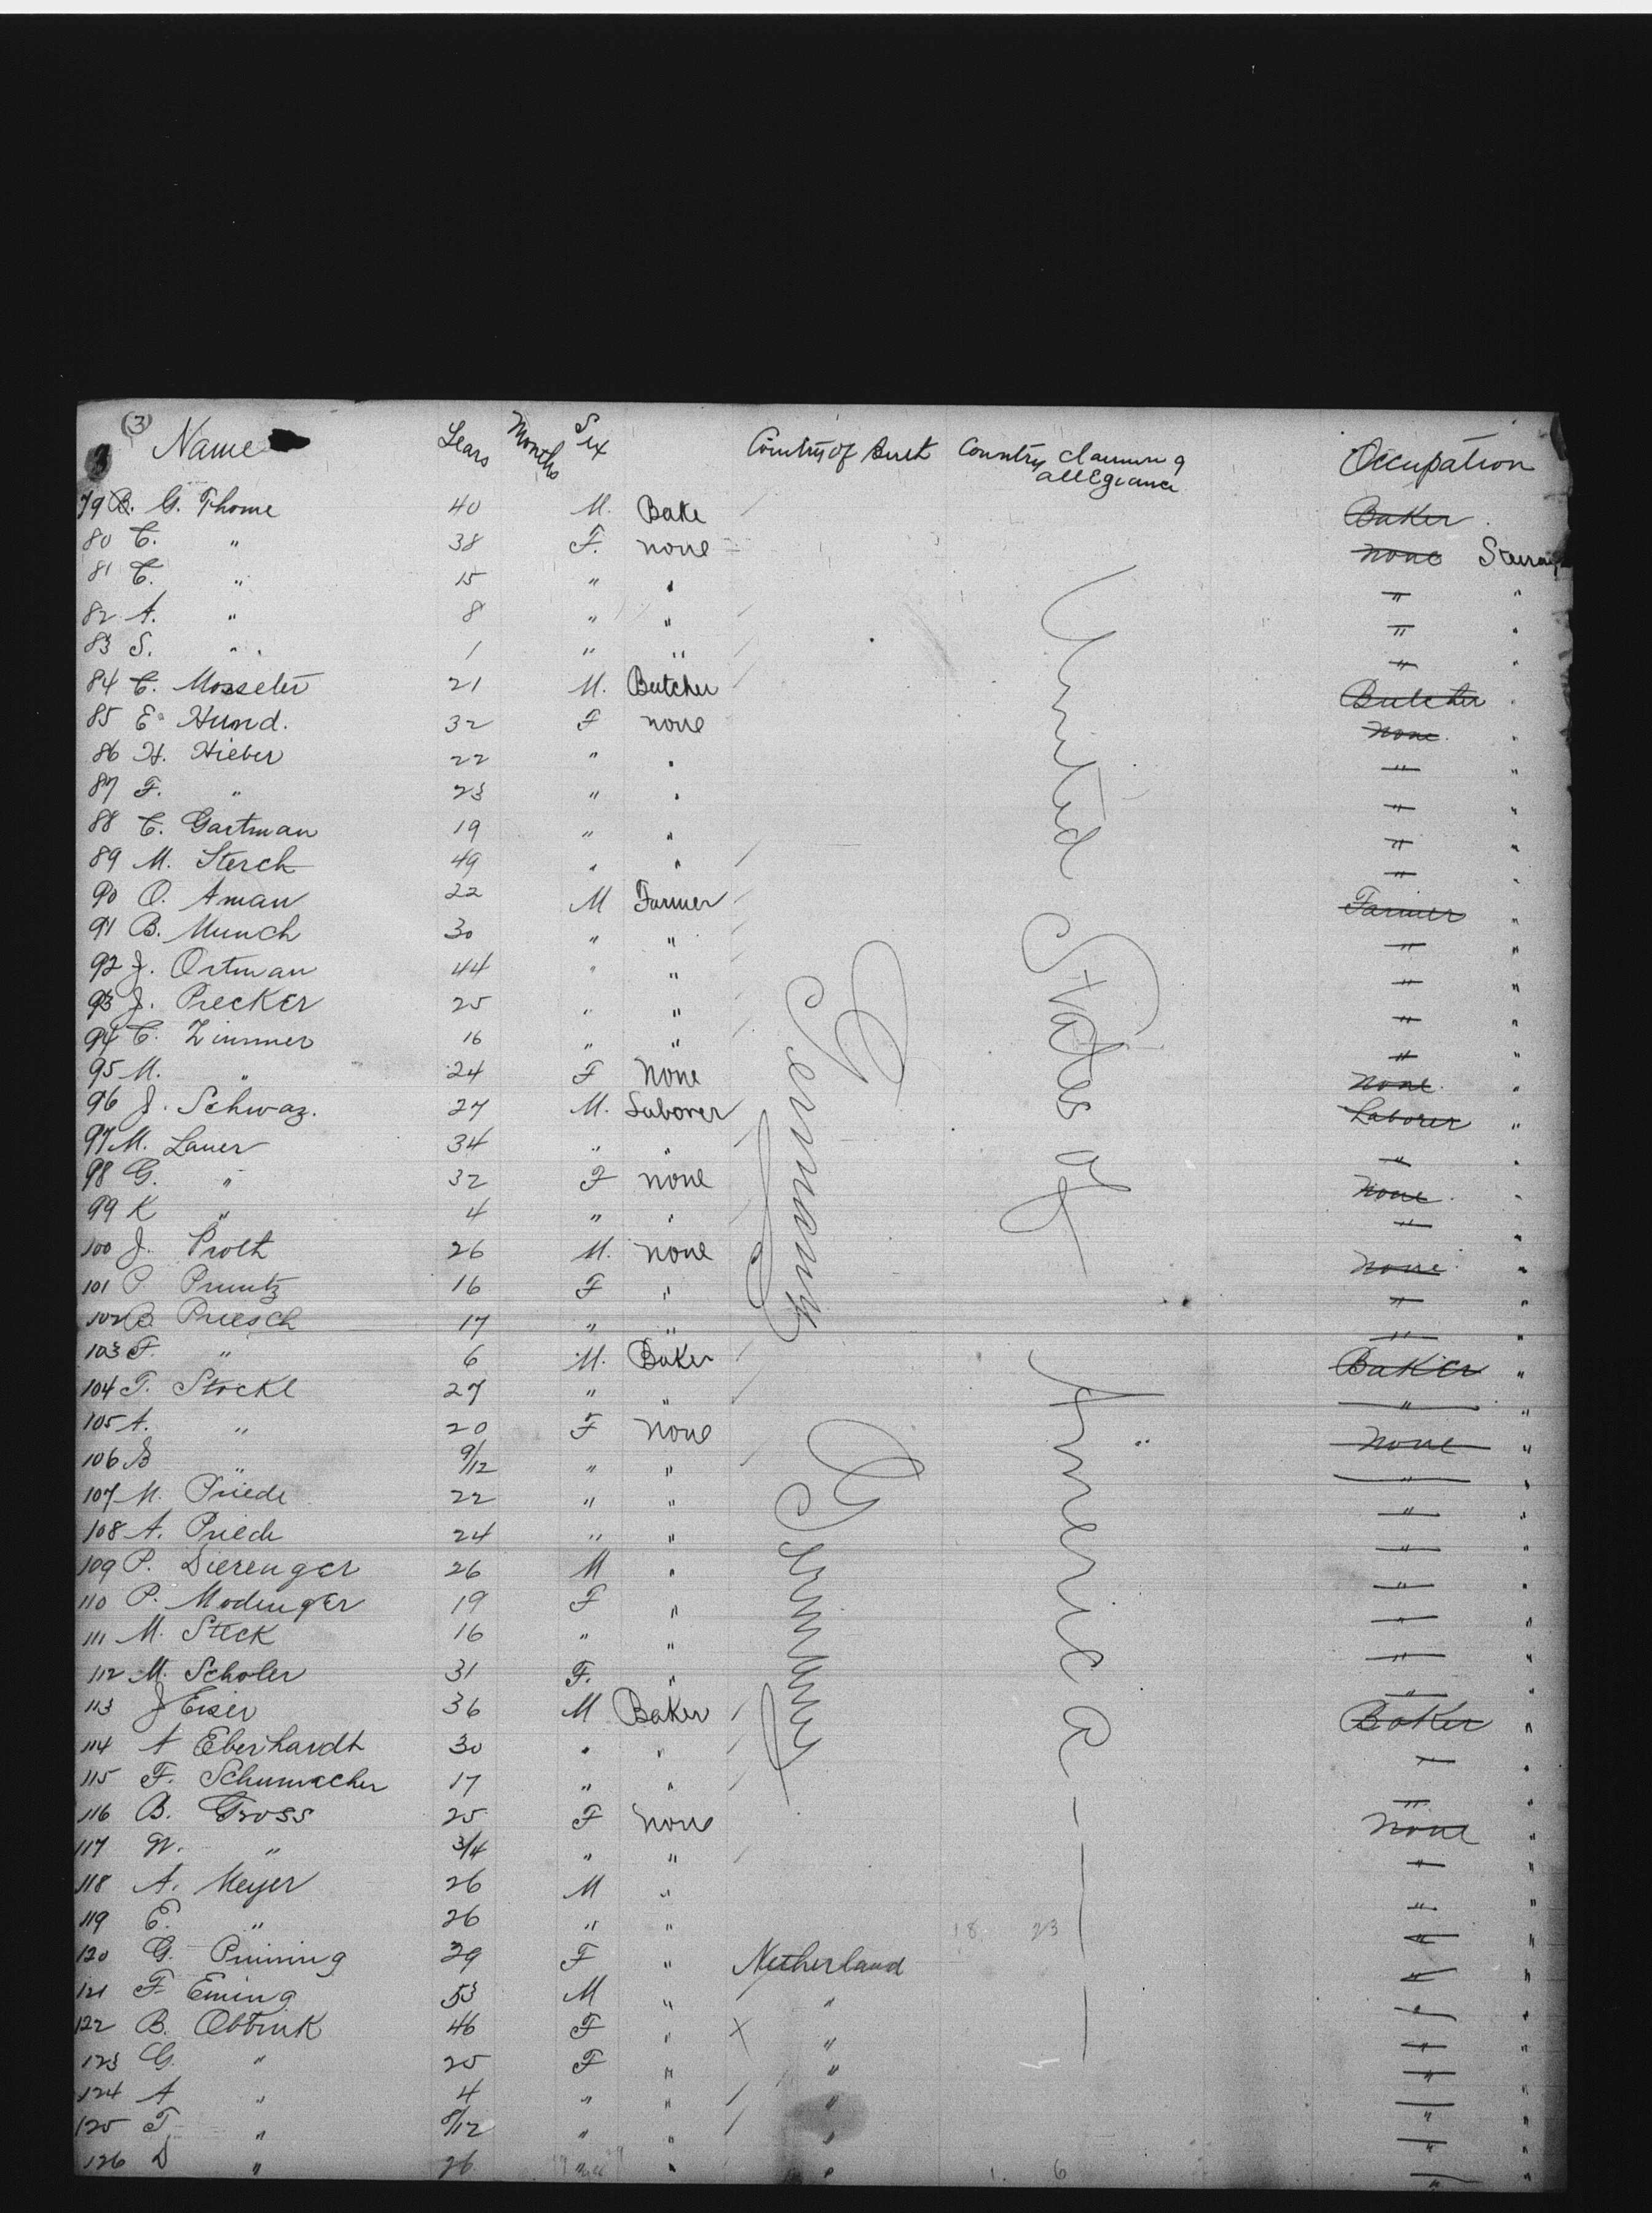 (3) Name Years Months Sex Country of Birth Country claiming allegiance Occupation
79 B. G. Thome 40 M. Bake Baker
80 C. " 38 F. none none Steerage
81 C. " 15 " " " "
82 A. " 8 " " " "
83 S. " 1 " " "
84 C. Mosseler 21 M. Butcher Butcher "
85 E Hund. 32 F none None "
86 H. Hieber 22 " " " "
87 F. " 23 " " " "
88 C. Gartman 19 " " " "
89 M. Sterch 49 " " " "
90 O. Aman 22 M Farmer Farmer "
91 B. Munch 30 " " " "
92 J. Ortman 44 " " " "
93 J. Precker 25 " " " "
94 C. Zimmer 16 " " " "
95 M. " 24 F None None "
96 J. Schwaz. 27 M. Laborer Laborer "
97 M. Lauer 34 " " " "
98 G. " 32 F none None "
99 K " 4 " " " "
100 J. Proth 26 M. none None "
101 P. Pruntz 16 F " " "
102 B Priesch 17 " " " "
103 F. " 6 M. Baker Baker "
104 T. Stockl 27 " " " "
105 A. " 20 F None None "
106 B " 9/12 " " " "
107 M. Priede 22 " " " "
108 A. Priede 24 " " " "
109 P. Dierenger 26 M " " "
110 P. Modinger 19 F " " "
111 M. Steck 16 " " " "
112 M. Scholer 31 F. " " "
113 J Eiser 36 M Baker Baker "
114 A Eberhardt 30 " " " "
115 F. Schumacher 17 " " " "
116 B. Gross 25 F None None "
117 W. " 3/4 " " " "
118 A. Meyer 26 M " " "
119 E. " 26 " " 18 23 " "
120 G. Pinning 29 F " Netherland " "
121 F Eming 53 M " " " "
122 B. Obbink 46 F " X " " "
123 G. " 25 F " " " "
124 A " 4 " " " " "
125 T " 8/12 " " " " "
126 D " 26 " " 6 " "
Germany
Germany
United States of America